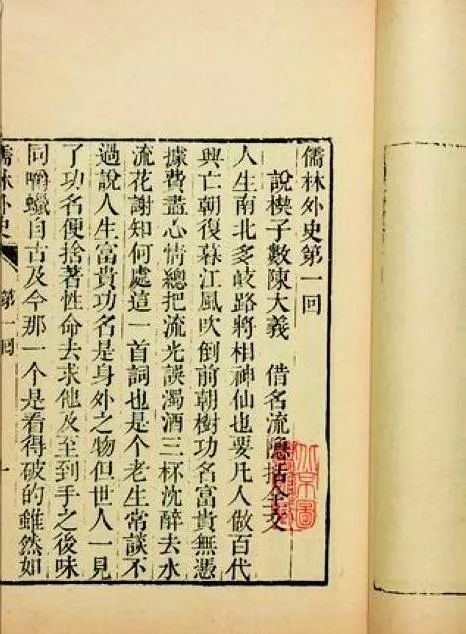 儒林外史第一回
說楔子敷陳大義　借名流隱括全文
人生南北多岐路將相神仙也要凡人做百代
興亡朝復暮江風吹倒前朝樹功名富貴無憑
據費盡心情總把流光誤濁酒三杯沈醉去水
流花謝知何處這一首詞也是个老生常談不
過說人生富貴功名是身外之物但世人一見
了功名便捨著性命去求他及至到手之後味
同嚼蠟自古及今那一个是看得破的雖然如
儒林外史　第一回　一